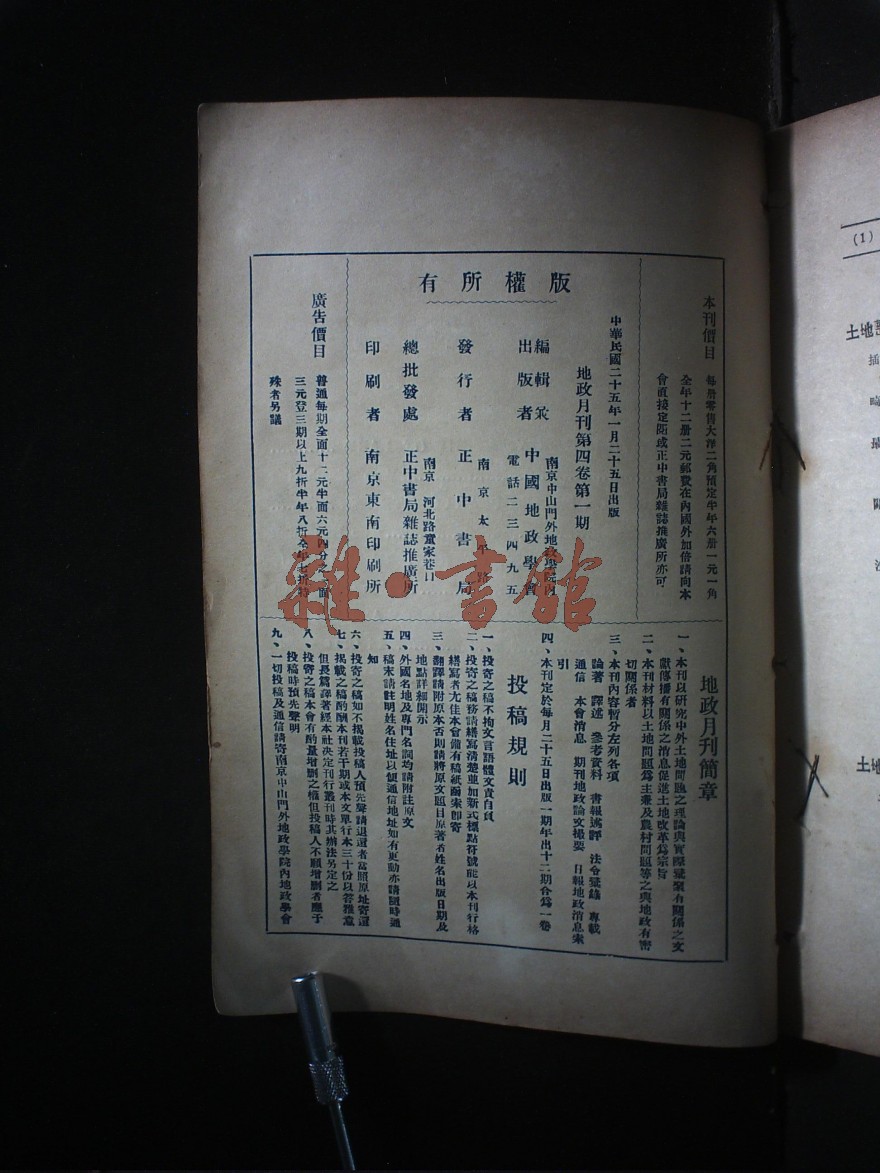 版權所有
本刊價目
每册零售大洋二角預定半年六册一元一角
全年十二册二元郵費在內國外加倍請向本
會直接定閱或正中書局雜誌推廣所亦可
中華民國二十五年一月二十五日出版
地政月刊第四卷第一期
編輯兼
出版者
南京中山門外地政學院內
中國地政學會
電話二三四九五
南京太平路
發行者 正中書局
南京 河北路童家巷口
總批發處 正中書局雜誌推廣所
印刷者 南京東南印刷所
廣告價目
普通每期全面十二元半面六元四分之一面
三元登三期以上九折半年八折全年七折特
殊者另議
地政月刊簡章
一、本刊以研究中外土地問題之理論與實際彙聚有關係之文
獻傳播有關係之消息促進土地改革爲宗旨
二、本刊材料以土地問題爲主兼及農村問題等之與地政有密
切關係者
三、本刊內容暫分左列各項
論著 譯述 參考資料 書報述評 法令彙錄 專載
通信 本會消息 期刊地政論文撮要 日報地政消息索
引
四、本刊定於每月二十五日出版一期年出十二期合爲一卷
投稿規則
一、投寄之稿不拘文言語體文責自負
二、投寄之稿務請繕寫清楚並加新式標點符號能以本刊行格
繕寫者尤佳本會備有稿紙函索卽寄
三、翻譯請附原本否則請將原文題目原著者姓名出版日期及
地點詳細開示
四、外國名地及專門名詞均請附註原文
五、稿末請註明姓名住址以便通信地址如有更動亦請隨時通
知
六、投寄之稿如不揭載投稿人預先聲請退還者當照原址寄還
七、揭載之稿酌酬本刊若干期或本文單行本三十份以答雅意
但長篇譯著經本社決定刊行叢刊時其辦法另定之
八、投寄之稿本會有酌量增删之權但投稿人不願增删者應予
投稿時預先聲明
九、一切投稿及通信請寄南京中山門外地政學院內地政學會
雜·書館
(1)
土地
插
最
土地